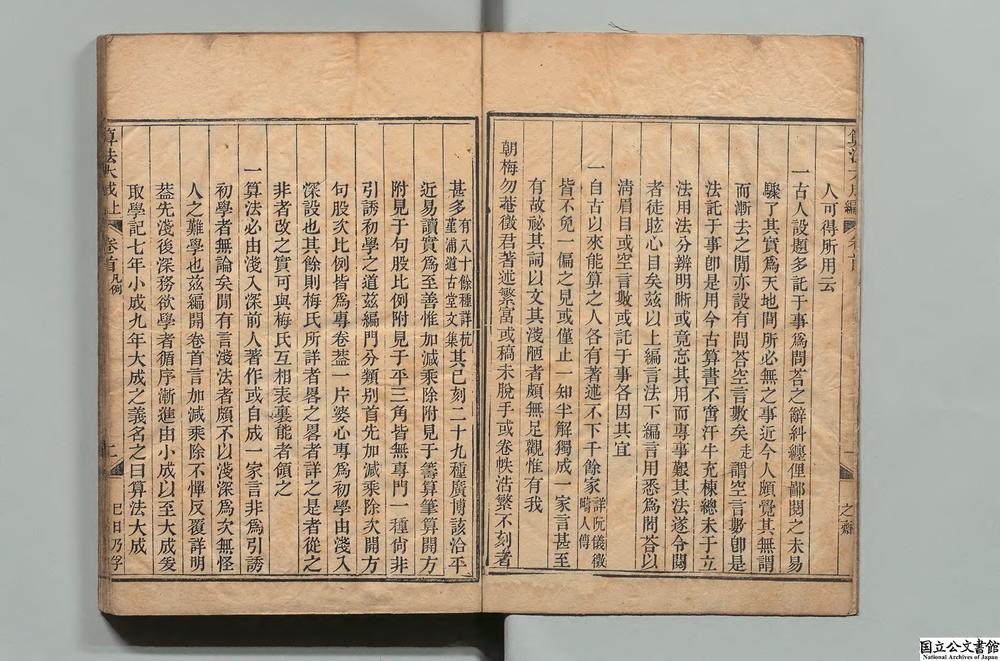 人可得所用云
一古人設題多託于事爲問荅之辭糾纏俚鄙閱之未易
驟了其實爲天地間所必無之事近今人頗覺其無謂
而漸去之閒亦設有問荅空言數矣走謂空言數卽是
法託于事卽是用今古算書不啻汗牛充棟總未于立
法用法分辨明晰或竟忘其用而專事艱其法遂令閱
者徒眩心目矣玆以上編言法下編言用悉爲問荅以
淸眉目或空言數或託于事各因其宜
一自古以來能算之人各有著述不下千餘家詳阮儀徵疇人傳
皆不免一偏之見或僅止一知半解獨成一家言甚至
有故祕其詞以文其淺陋者頗無足觀惟有我
朝梅勿菴徵君著述繁富或稿未脫手或卷帙浩繁不刻者
算法大成上 卷首凡例 二 巳日乃孚
甚多有八十餘種詳杭堇浦道古堂文集其已刻二十九種廣博該洽平
近易讀實爲至善惟加減乘除附見于籌算筆算開方
附見于句股比例附見于平三角皆無專門一種尙非
引誘初學之道玆編門分類別首先加減乘除次開方
句股次比例皆爲專卷葢一片婆心專爲初學由淺入
深設也其餘則梅氏所詳者畧之畧者詳之是者從之
非者改之實可與梅氏互相表裏能者領之
一算法必由淺入深前人著作或自成一家言非爲引誘
初學者無論矣閒有言淺法者頗不以淺深爲次無怪
人之難學也玆編開卷首言加減乘除不憚反覆詳明
葢先淺後深務欲學者循序漸進由小成以至大成爰
取學記七年小成九年大成之義名之曰算法大成
国立公文書館
National Archives of Japan